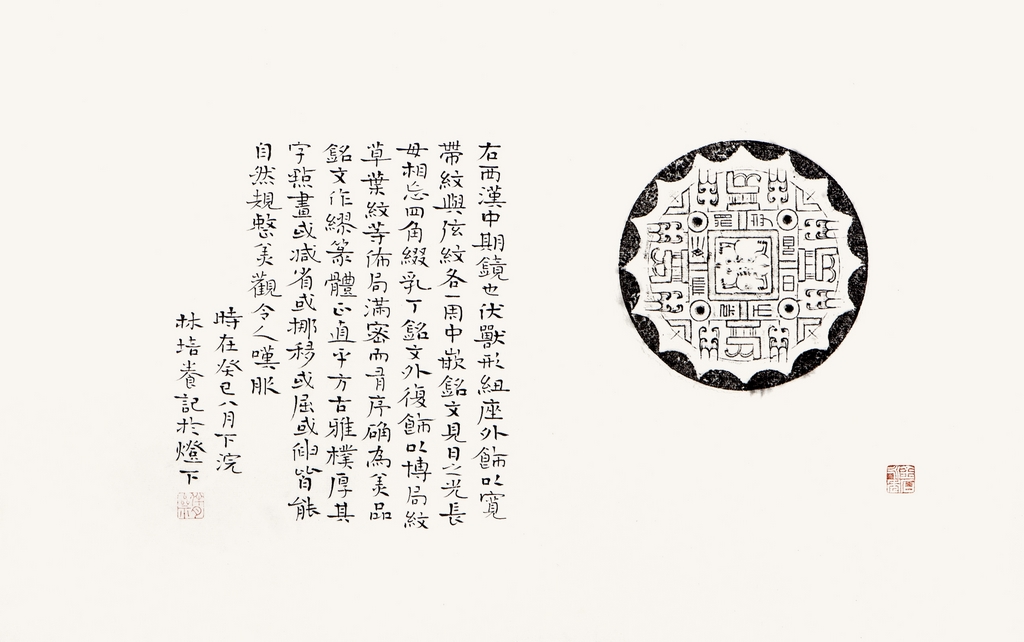 右西漢中期鏡也伏獸形紐座外飾以寬
帶紋與弦紋各一周中嵌銘文見日之光長
毋相忘四角綴乳丁銘文外復飾以博局紋
草葉紋等佈局滿密而有序確為美品
銘文作繆篆體正直平方古雅樸厚其
字點畫或減省或挪移或屈或伸皆能
自然規整美觀令人嘆服
時在癸巳八月下浣
林培養記於燈下